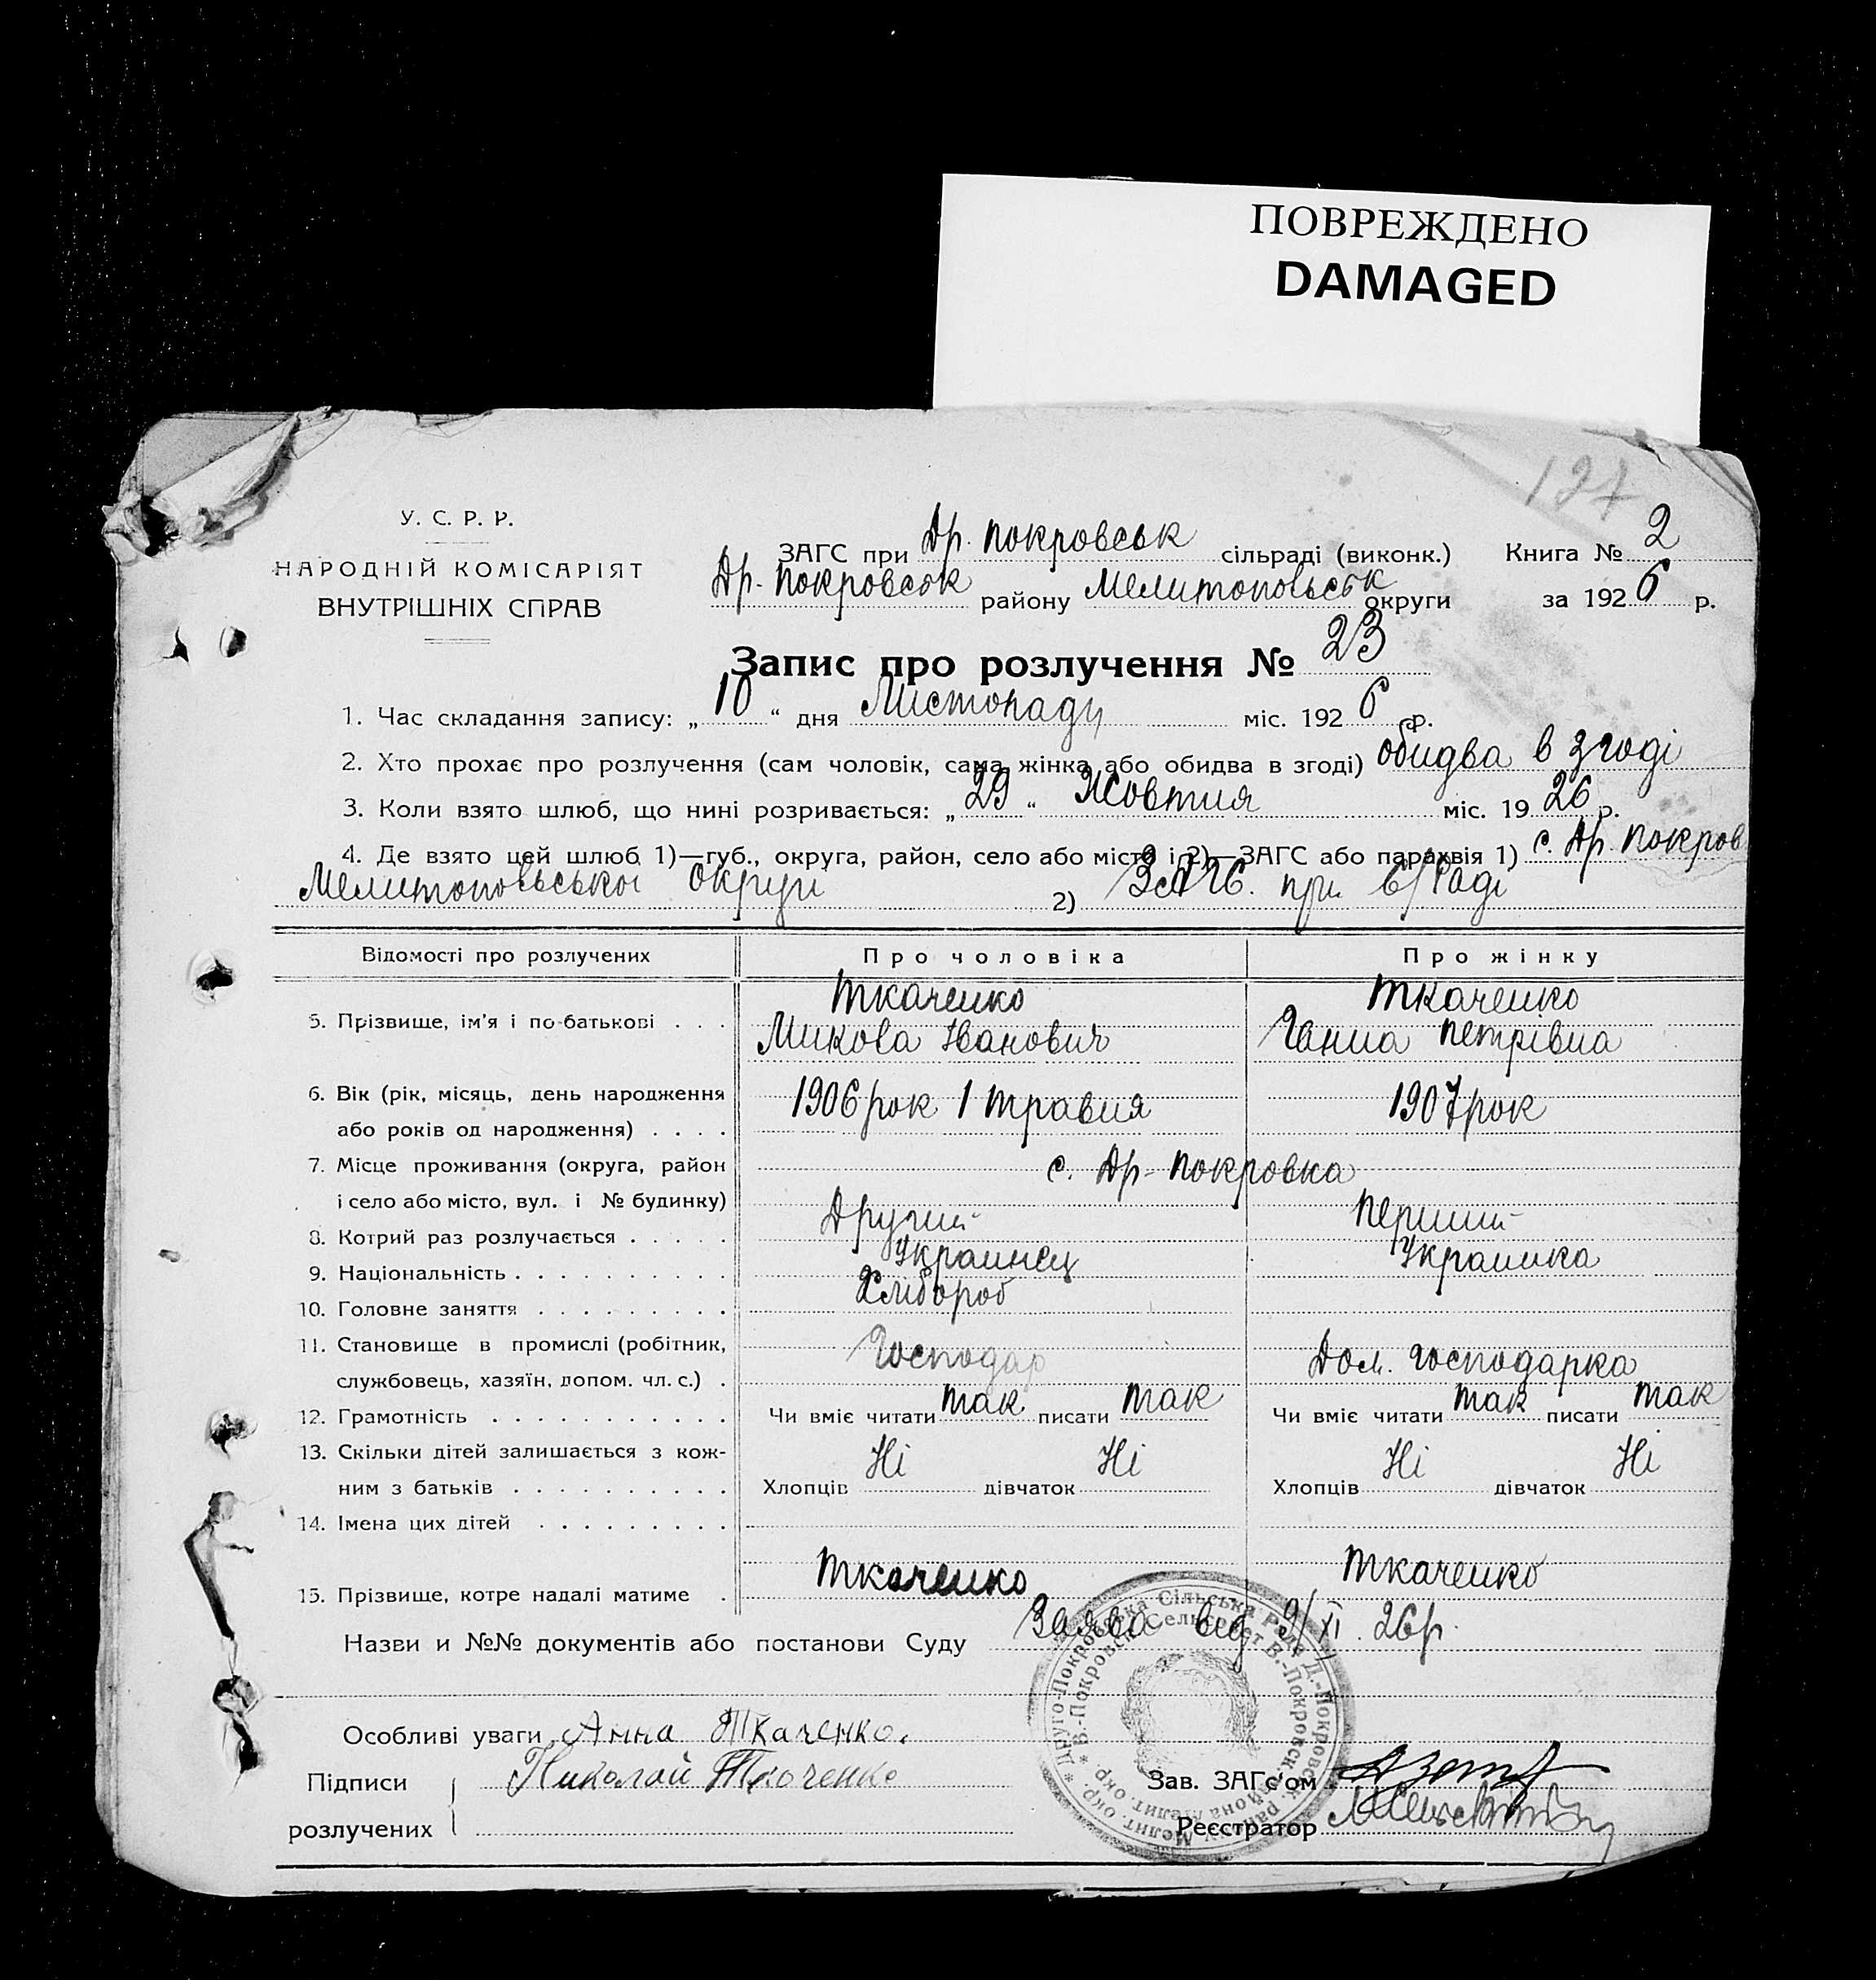 ПОВРЕЖДЕНО
DAMAGED
127
У. С. Р. Р.
НАРОДНІЙ КОМІСАРІЯТ
ВНУТРІШНІХ СПРАВ
ЗАГС при Др. Покровськ сільраді (виконк.) Книга № 2
Др. Покровськ району Мелитопольськ округи за 1926 р.
Запис про розлучення № 23
1. Час складання запису: „10“ дня Листопаду міс. 1926 р.
2. Хто прохає про розлучення (сам чоловік, сама жінка або обидва в згоді) обидва в згоді
3. Коли взято шлюб, що нині розривається: „29“ Жовтня міс. 1926 р.
4. Де взято цей шлюб 1)—губ., округа, район, село або місто і 2)—ЗАГС або парахвія 1) с. Др. Покров
Мелитопольської Округи 2) ЗАГС. при с/Раді
Відомості про розлучених Про чоловіка Про жінку
Ткаченко Ткаченко
5. Прізвище, ім'я і по-батькові . . . Микола Іванович Ганна Петрівна
6. Вік (рік, місяць, день народження 1906 рок 1 травня 1907 рок
або років од народження) . . . .
7. Місце проживання (округа, район с. Др-Покровка
і село або місто, вул. і № будинку)
8. Котрий раз розлучається . . . . . Другий Перший
9. Національність . . . . . . . . . . Украинец Украинка
10. Головне заняття . . . . . . . . . Хлібороб
11. Становище в промислі (робітник, Господар Дом. господарка
службовець, хазяїн, допом. чл. с.) .
12. Грамотність . . . . . . . . . . . Чи вміє читати так писати так Чи вміє читати так писати так
13. Скільки дітей залишається з кож-
ним з батьків . . . . . . . . . . Хлопців Ні дівчаток Ні Хлопців Ні дівчаток Ні
14. Імена цих дітей . . . . . . . . .
15. Прізвище, котре надалі матиме . Ткаченко Ткаченко
Назви и №№ документів або постанови Суду Заява від 9/XI 26р.
Особливі уваги Анна Ткаченко.
Підписи Николай Ткаченко
розлучених
Зав. ЗАГс'ом
Реєстратор
Друго-Покровська Сільська Рада Д.-Покровськ. району Мелит. окр.
В.-Покровск. Сельсовет В.-Покровск. района Мелит. окр.